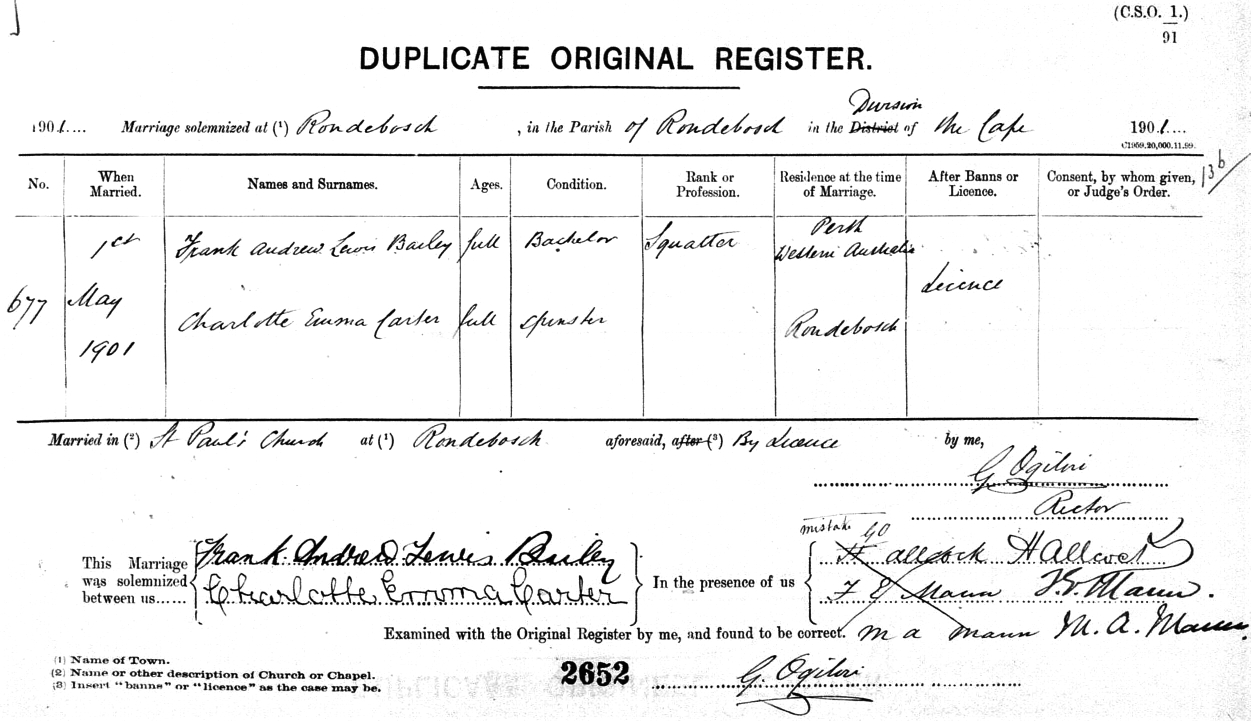 (C.S.O. 1.)
91
DUPLICATE ORIGINAL REGISTER.
Division
1901.... Marriage solemnized at (1) Rondebosch, in the Parish of Rondebosch in the District of the Cape 1901....
C1959.20,000.11.99.
13b
No. When Married. Names and Surnames. Ages. Condition. Rank or Profession. Residence at the time of Marriage. After Banns or Licence. Consent, by whom given, or Judge's Order.
1st Frank Andrew Lewis Bailey full Bachelor Squatter Perth Western Australia
Licence
677 May
Charlotte Emma Carter full Spinster Rondebosch
1901
Married in (2) St Paul's Church at (1) Rondebosch aforesaid, after (3) By Licence by me,
G Ogilvi
Rector
mistake GO
This Marriage was solemnized between us...... Frank Andrew Lewis Bailey
Charlotte Emma Carter
In the presence of us H allcock H Allcock
F E Mann F. E. Mann.
Examined with the Original Register by me, and found to be correct. M a Mann M. A. Mann.
(1) Name of Town.
(2) Name or other description of Church or Chapel.
(3) Insert "banns" or "licence" as the case may be.
2652
G. Ogilvi